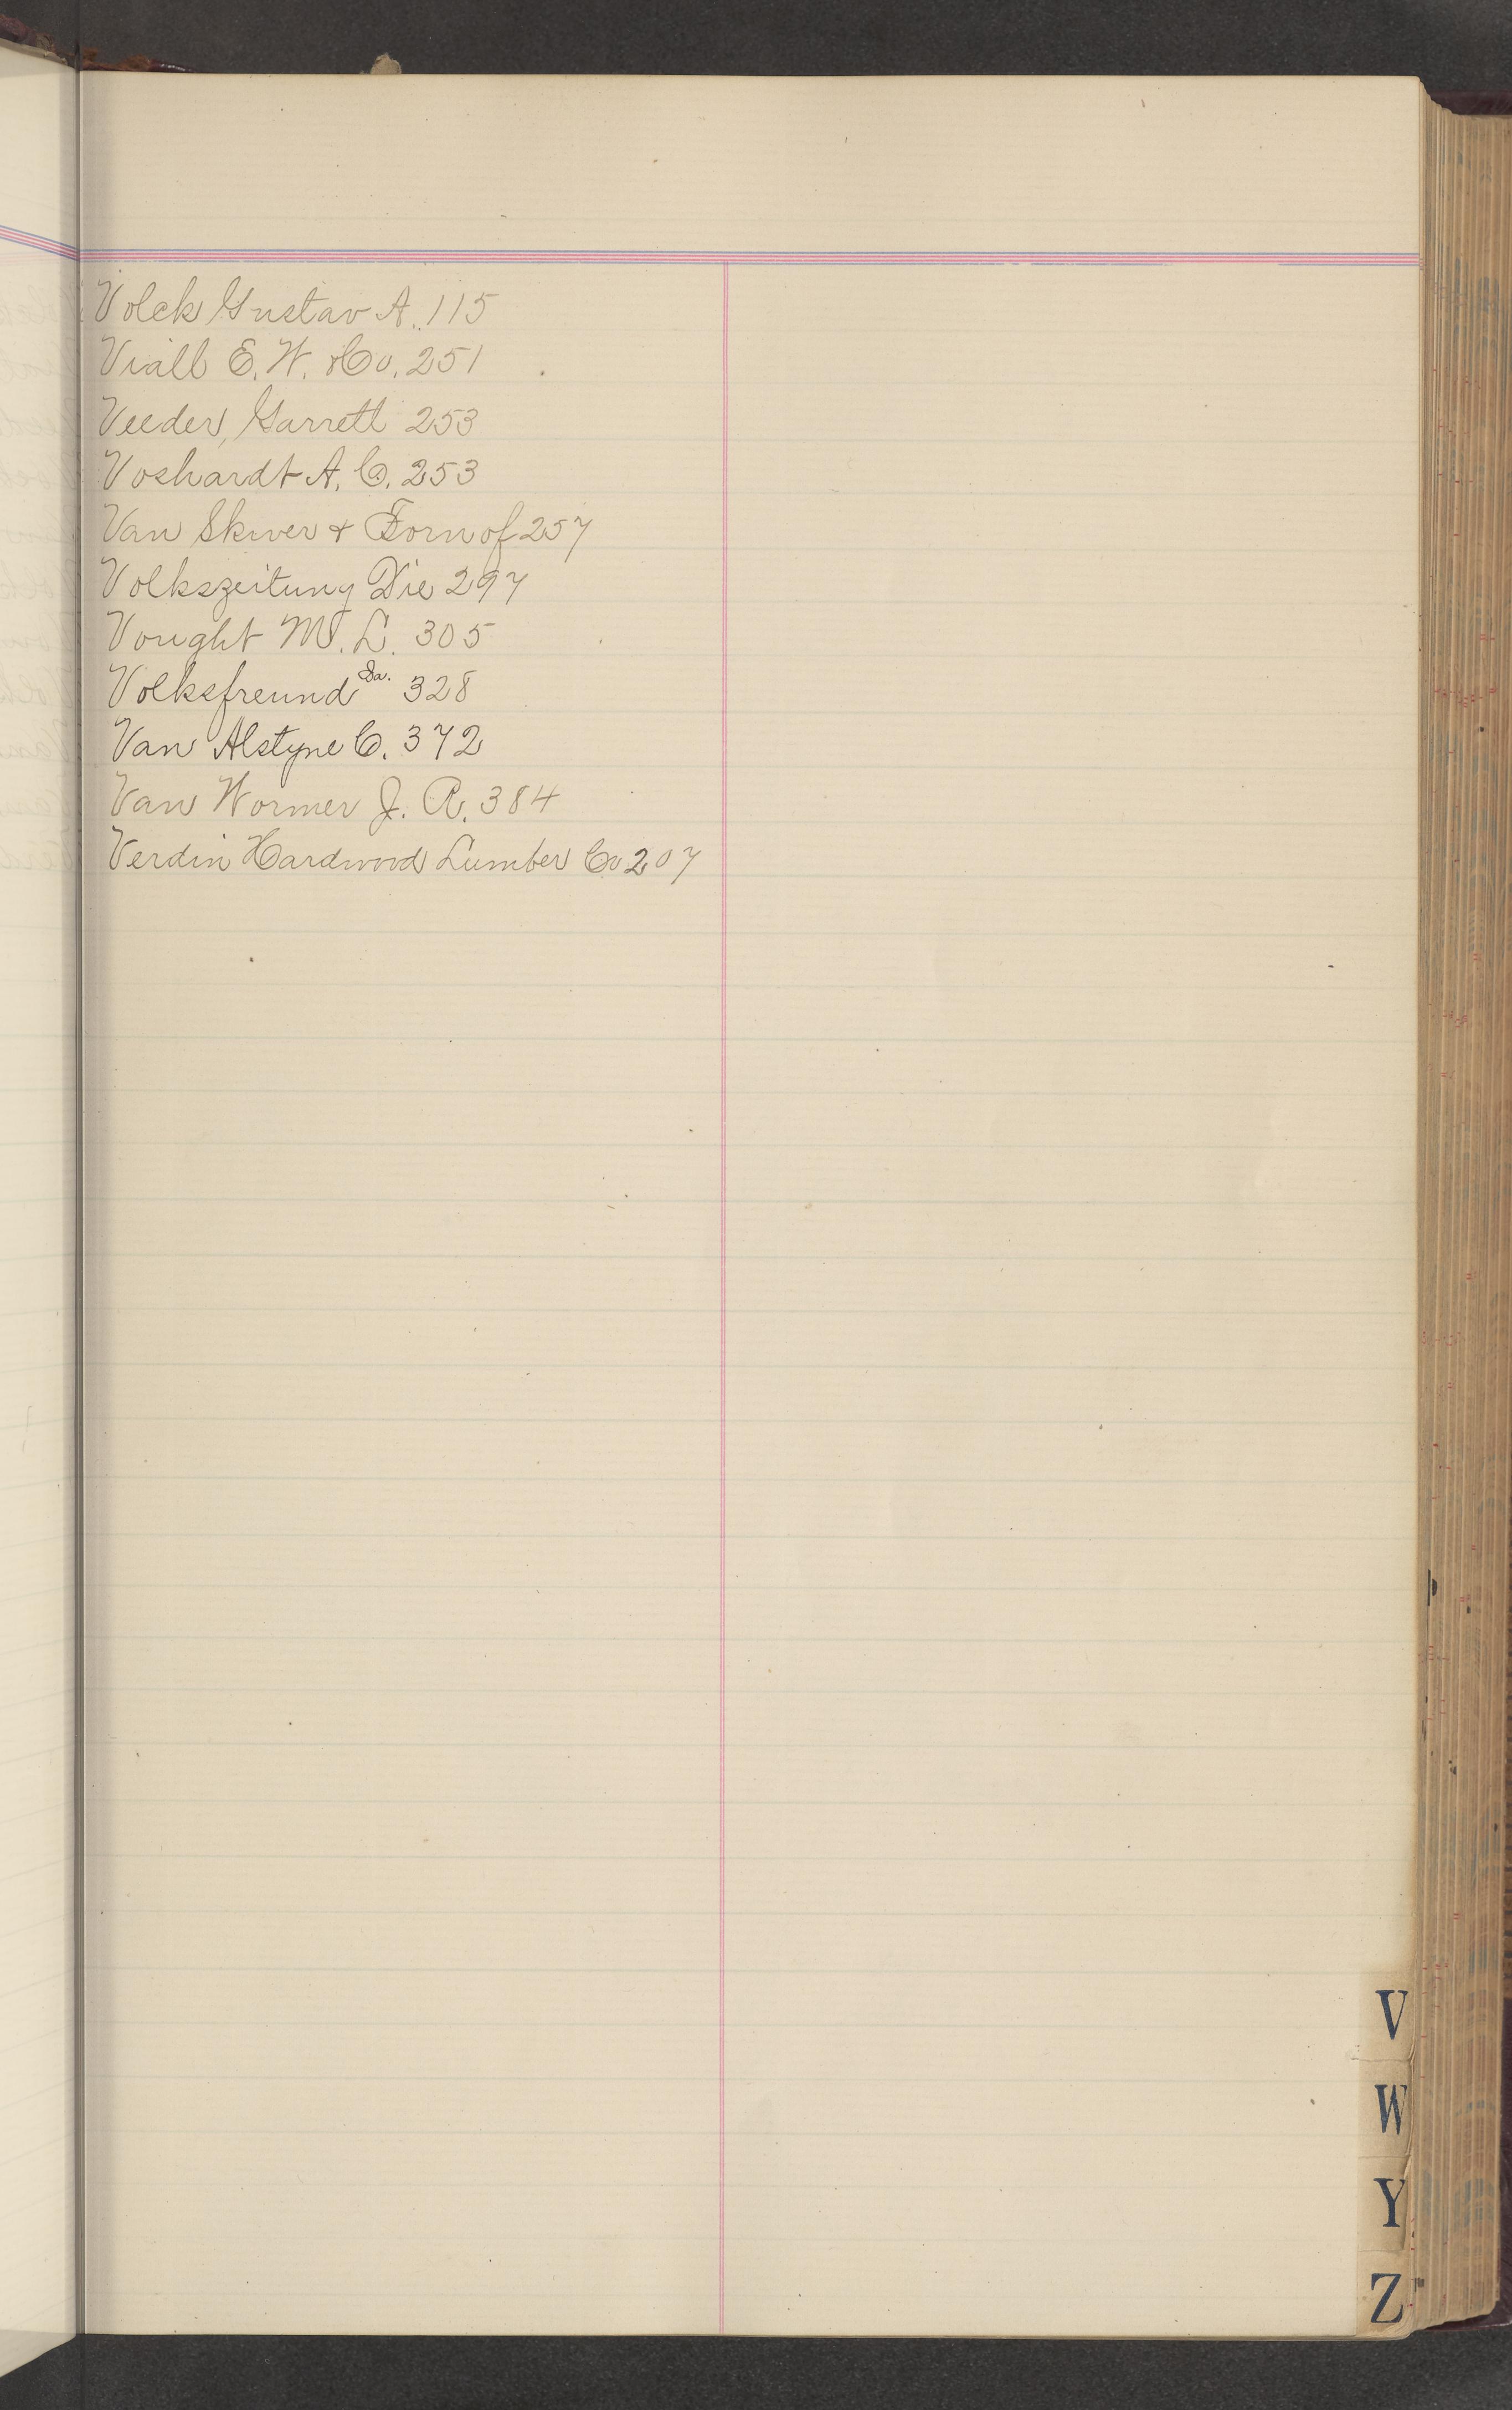 Volck Gustav A. 115
Viall E. W. & Co. 251
Veeder, Garrett 253
Voshardt A. C. 253
Van Skiver & Fornof 257
Volkszeitung Die 297
Vought M. L. 305
Volksfreund Da. 328
Van Alstyne C. 372
Van Wormer J. R. 384
Verdin Hardwood Lumber Co 207
V
W
Y
Z